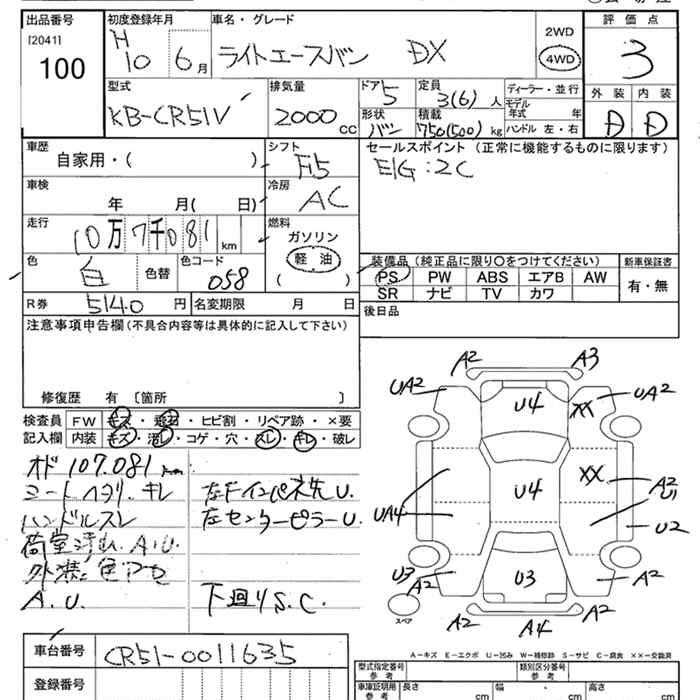 出品番号
[2041]
100
初度登録年月
H
10 6月
車名・グレード
ライトエースバン DX
2WD
4WD
評価点
3
外装 内装
D D
型式
KB-CR51V
排気量
2000 CC
ドア
5
定員
3(6)人
形状
バン
積載
750(500)kg
ディーラー・並行
モデル年式 年
ハンドル 左・右
車歴
自家用・( )
シフト
F5
セールスポイント (正常に機能するものに限ります)
E/G:2C
車検
年 月( 日)
冷房
AC
走行
10万7千081km
燃料
ガソリン
軽油
( )
色
白
色替
色コード
058
装備品(純正品に限り〇をつけてください)
PS PW ABS エアB AW
SR ナビ TV カワ
新車保証書
有・無
R券
5140円
名変期限 月 日
後日品
注意事項申告欄(不具合内容等は具体的に記入して下さい)
修復歴 有 〔箇所 〕
検査員記入欄
FW キズ・飛石・ヒビ割・リペア跡・×要
内装 キズ・汚レ・コゲ・穴・スレ・キレ・破レ
オド 107.081km
シートヘタリ.キレ
左Fインパネ先U.
ハンドルスレ
左センターピラーU.
荷室汚れ.A.U.
外装.色アセ
A.U.
下廻りS.C.
A2 A3
UA2 U4 XX UA2
XX
UA4 U4 A2 U1
U2
U3 A2 U3 A2
A2 A4 A2
スペア
A−キズ E−エクボ U−凹み W−補修跡 S−サビ C−腐食 XX−交換済
車台番号
CR51-0011635
登録番号
型式指定番号
参考
類別区分番号
参考
車庫証明用
参考
長さ cm
幅 cm
高さ cm